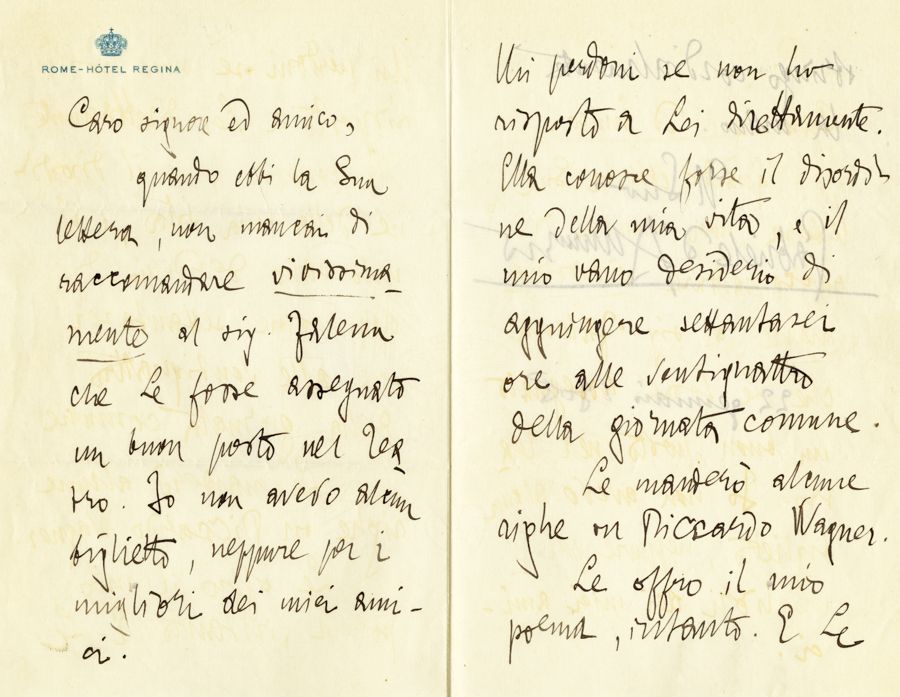 ROME-HÔTEL REGINA
Caro signore ed amico,
quando ebbi la Sua
lettera, non mancai di
raccomandare vivissima-
mente al sig. Falena
che Le fosse assegnato
un buon posto nel Tea-
tro. Io non avevo alcun
biglietto, neppure per i
migliori dei miei ami-
ci.
Mi perdoni se non ho
risposto a Lei direttamente.
Ella conosce forse il disordi-
ne della mia vita, e il
mio vano desiderio di
aggiungere settantasei
ore alle ventiquattro
della giornata comune.
Le manderò alcune
righe su Riccardo Wagner.
Le offro il mio
poema, intanto. E Le